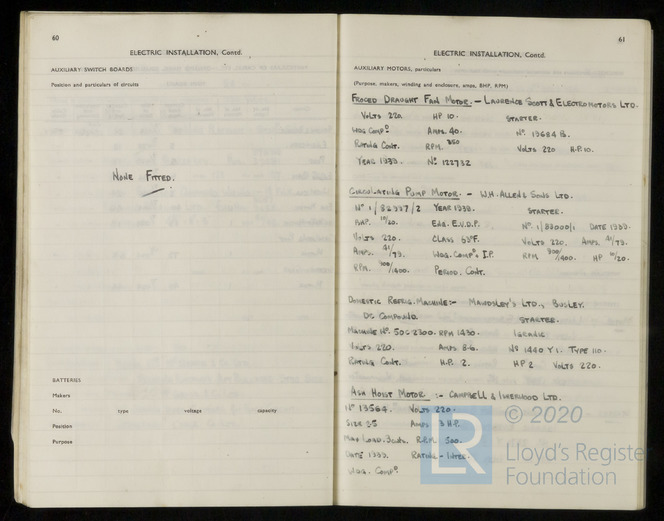 60
ELECTRIC INSTALLATION, Contd.
AUXILIARY SWITCH BOARDS
Position and particulars of circuits
NONE FITTED.
BATTERIES
Makers
No. type voltage capacity
Position
Purpose
61
ELECTRIC INSTALLATION, Contd.
AUXILIARY MOTORS, particulars
(Purpose, makers, winding and enclosure, amps, BHP, RPM)
FROCED DRAUGHT FAN MOTOR. — LAURENCE SCOTT & ELECTROMOTORS LTD.
VOLTS 220 HP 10. STARTER.
WDG COMPD AMPS. 40. No. 13684 B.
RATING CONT. RPM. 850 VOLTS 220 H.P. 10.
YEAR 1939. No 122732
CIRCULATING PUMP MOTOR. — W.H. ALLEN & SONS LTD.
No 1/82997/2 YEAR 1939. STARTER.
BHP. 10/20. ENG. E.V.D.P. No. 1/83000/1 DATE 1939.
VOLTS 220. CLASS 55°F. VOLTS 220. AMPS. 41/79.
AMPS. 41/79. WDG. COMPD I.P. RPM 800/1400. HP 10/20.
RPM. 800/1400. PERIOD. CONT.
DOMESTIC REFRIG. MACHINE:- MAWDSLEY'S LTD., DUSLEY.
DC COMPOUND. STARTER.
MACHINE No. 50C2300. RPM 1430. IGRANIC
VOLTS 220. AMPS 8.6. No 1440 Y1. TYPE 110.
RATING CONT. H.P. 2. HP 2 VOLTS 220.
ASH HOIST MOTOR :- CAMPBELL & ISHERWOOD LTD.
No 13564. VOLTS 220.
SIZE 35 AMPS 3 H.P.
MAX LOAD. 3cwt. R.P.M. 500.
DATE 1939. RATING - INTER.
WDG. COMPD.
© 2020
LR Lloyd's Register
Foundation